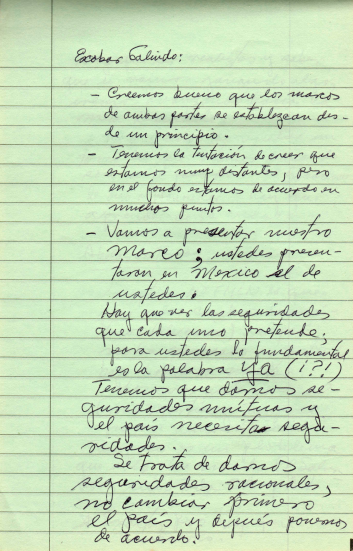 Escobar Galindo:
- Creemos bueno que los marcos
de ambas partes se establezcan des-
de un principio.
- Tenemos la tentación de creer que
estamos muy distantes, pero
en el fondo estamos de acuerdo en
muchos puntos.
- Vamos a presentar nuestro
marco; ustedes presen-
taron en Mexico el de
ustedes.
Hay que ver las seguridades
que cada uno pretende;
para ustedes lo fundamental
es la palabra ya (¡?!)
Tenemos que darnos se-
guridades mutuas y
el país necesita segu-
ridades.
Se trata de darnos
seguridades racionales,
no cambiar primero
el país y después ponernos
de acuerdo.